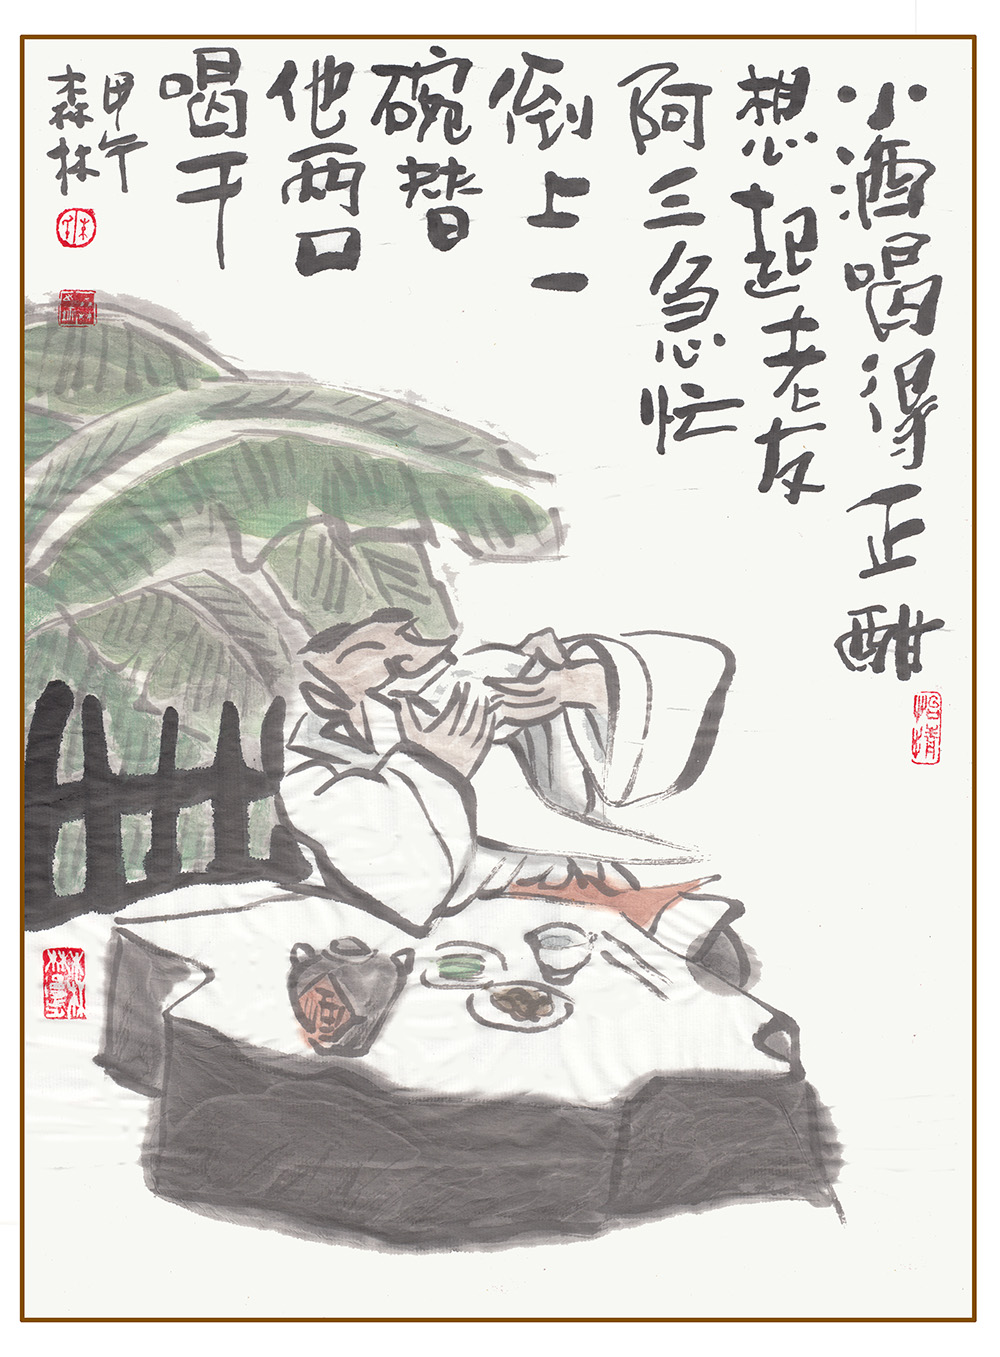 小酒喝得正酣
想起老友
阿三急忙
倒上一
碗替
他两口
喝干
甲午
森林
怡情
酒